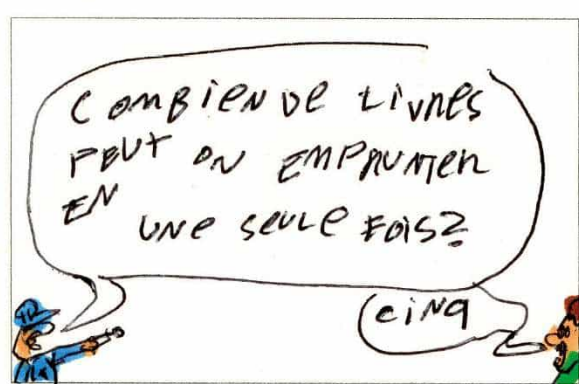 COMBIEN DE LIVRES
PEUT ON EMPRUNTER
EN
UNE SEULE FOIS?
CINQ